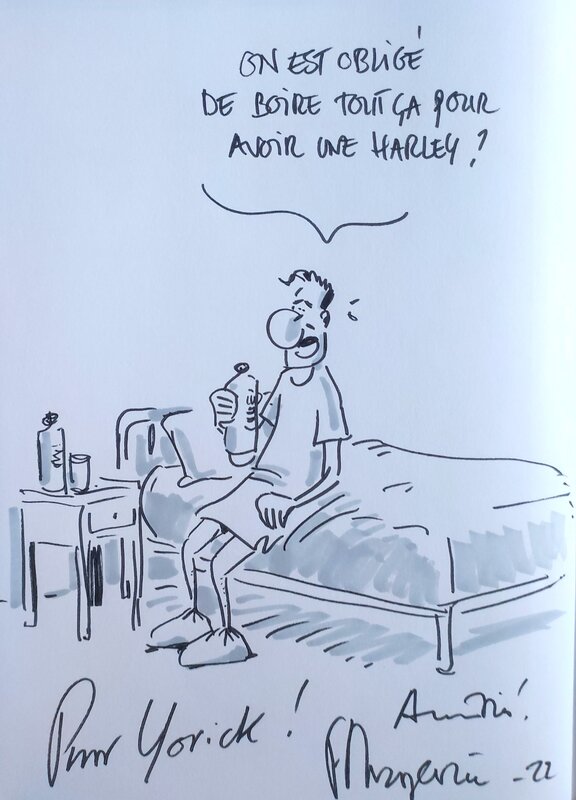 ON EST OBLIGÉ
DE BOIRE TOUT ÇA POUR
AVOIR UNE HARLEY ?
Pour Yorick !
Amitié !
F Margerin -22